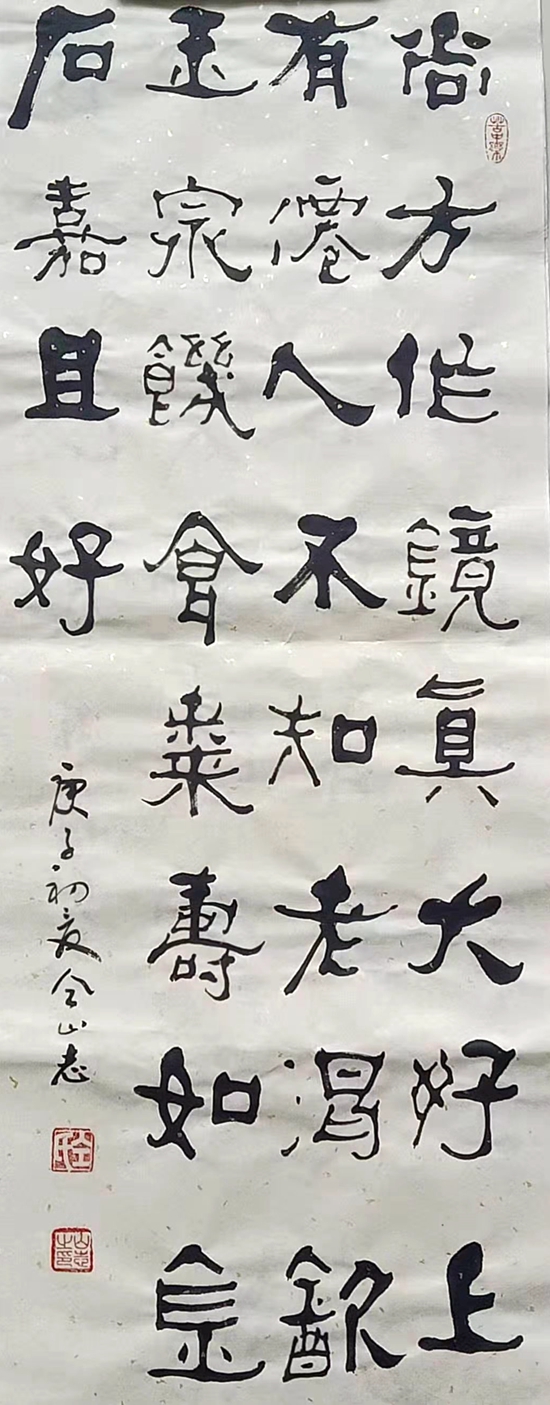 尚方作鏡真大好上
有僊人不知老渴飲
玉泉饑食棗壽如金
石嘉且好
庚子初夏全山志